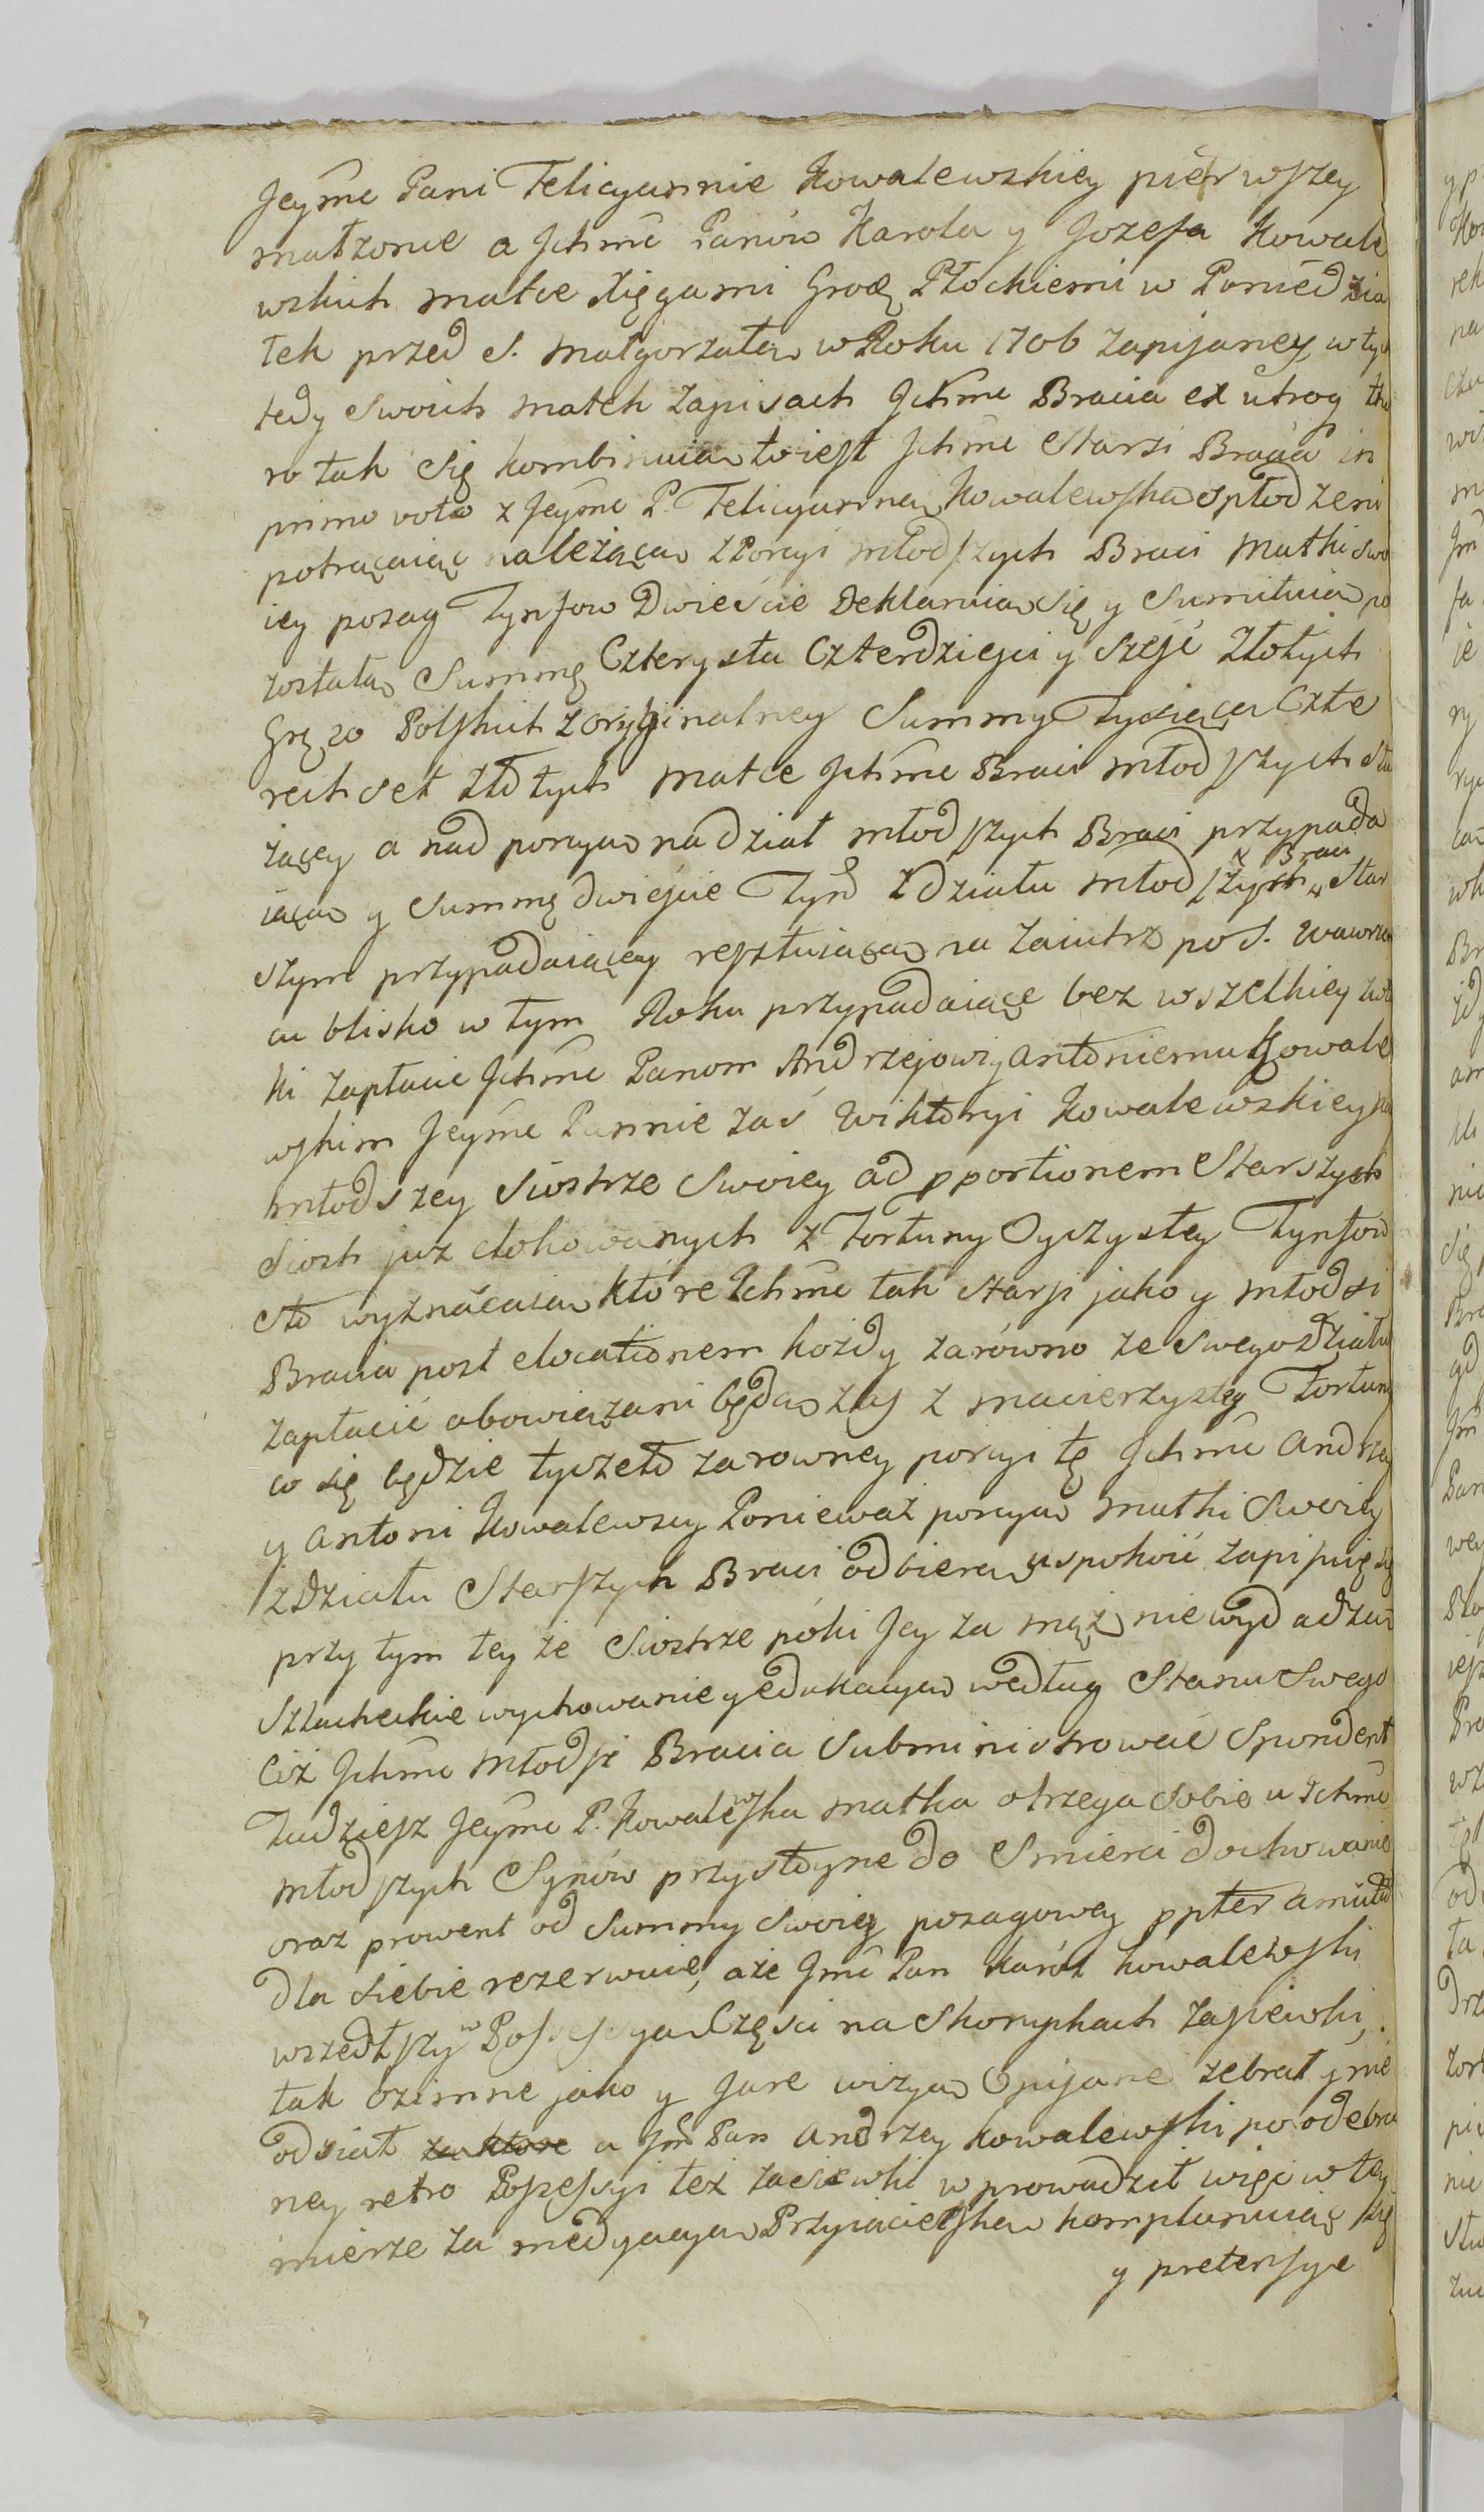 Jeyme Pani Felicyannie Kowalewskiey pierwszey
małzonie a Jchmc Panow Karola y Jozefa Kowale
wskich matce Xięgami Grodz Płockiemi w Poniedzia
łek przed S. Małgorzatą w Roku 1706 zapisaney, w tych
tedy swoich matek zapisach Jchmc Bracia ex utroq tho
ro tak się kombinuią to iest Jchmc Starsi Bracia in
primo voto z Jeyme P. Felicyanną Kowalewską spłodzeni
potrącaiąc należącą z Porcyi młodszych Braci Matki swo
iey posag Tynfow Dwieście Deklaruią się y Sumituią po
zostałą Summę Czterysta Czterdzieści y Sześć Złotych
Grę 20 Polskich z oryginalney Summy Tysiąca Czte
rech set Złotych Matce Jchmc Braci młodszych słu
żącey a nad porcyą na dział młodszych Braci przypada
iącą y Summę dwieście Tynf z działu młodszych x Braci Star
szym przypadaiącey resztuiącą na zaiutrz po S. Wawrzyn
cu blisko w tym Roku przypadaiące bez wszelkiey zwło
ki zapłacic Jchmc Panom Andrzejowi y Antoniemu Kowale
wskim Jeyme Pannie zaś Wiktoryi Kowalewskiey na
młodszey Siostrze Swoiey ad pportionem Starszych
Siostr juz elokowanych z Fortuny Oyczystey Tynfow
Sto wyznaczaią, ktore Jchmc tak Starsi jako y młodsi
Bracia post elocationem kożdy zarówno ze swego działu
zapłacić obowiązani będą, zaś z macierzystey Fortuny
co się będzie tyczeło zarowney porcyi tę Jchmc Andrzey
y Antoni Kowalewscy Ponieważ porcyą Matki Swoiey
z działu Starszych Braci odbieraią uspokoić zapisuię się
przy tym tey że Siostrze póki Jey za mąż nie wydadzą
Szlacheckie wychowanie y edukacyą według Stanu Swego
Ciż Jchmc Młodsi Bracia Subministrować Spondent
Tudziesz Jeyme P. Kowalewska matka ostrzega sobie u Jchmc
młodszych Synów przystoyne do Smierci dochowanie
oraz prowent od Summy Swoiey posagowey ppter amictū
dla siebie rezerwuie, aże Jmc Pan Karól Kowalewski
wszedłszy w Possessyą Części na Skorupkach Zasiewki,
tak ozimne jako y Jare wizyą Opisane zebrał y nie
odsiał za ktore a Jm Pan Andrzey Kowalewski po odebra
ney retro Possessyi też zasiewki w prowadził więc w tey
mierze za medyacyą Przyiacielską komplanuiąc się
y pretensye